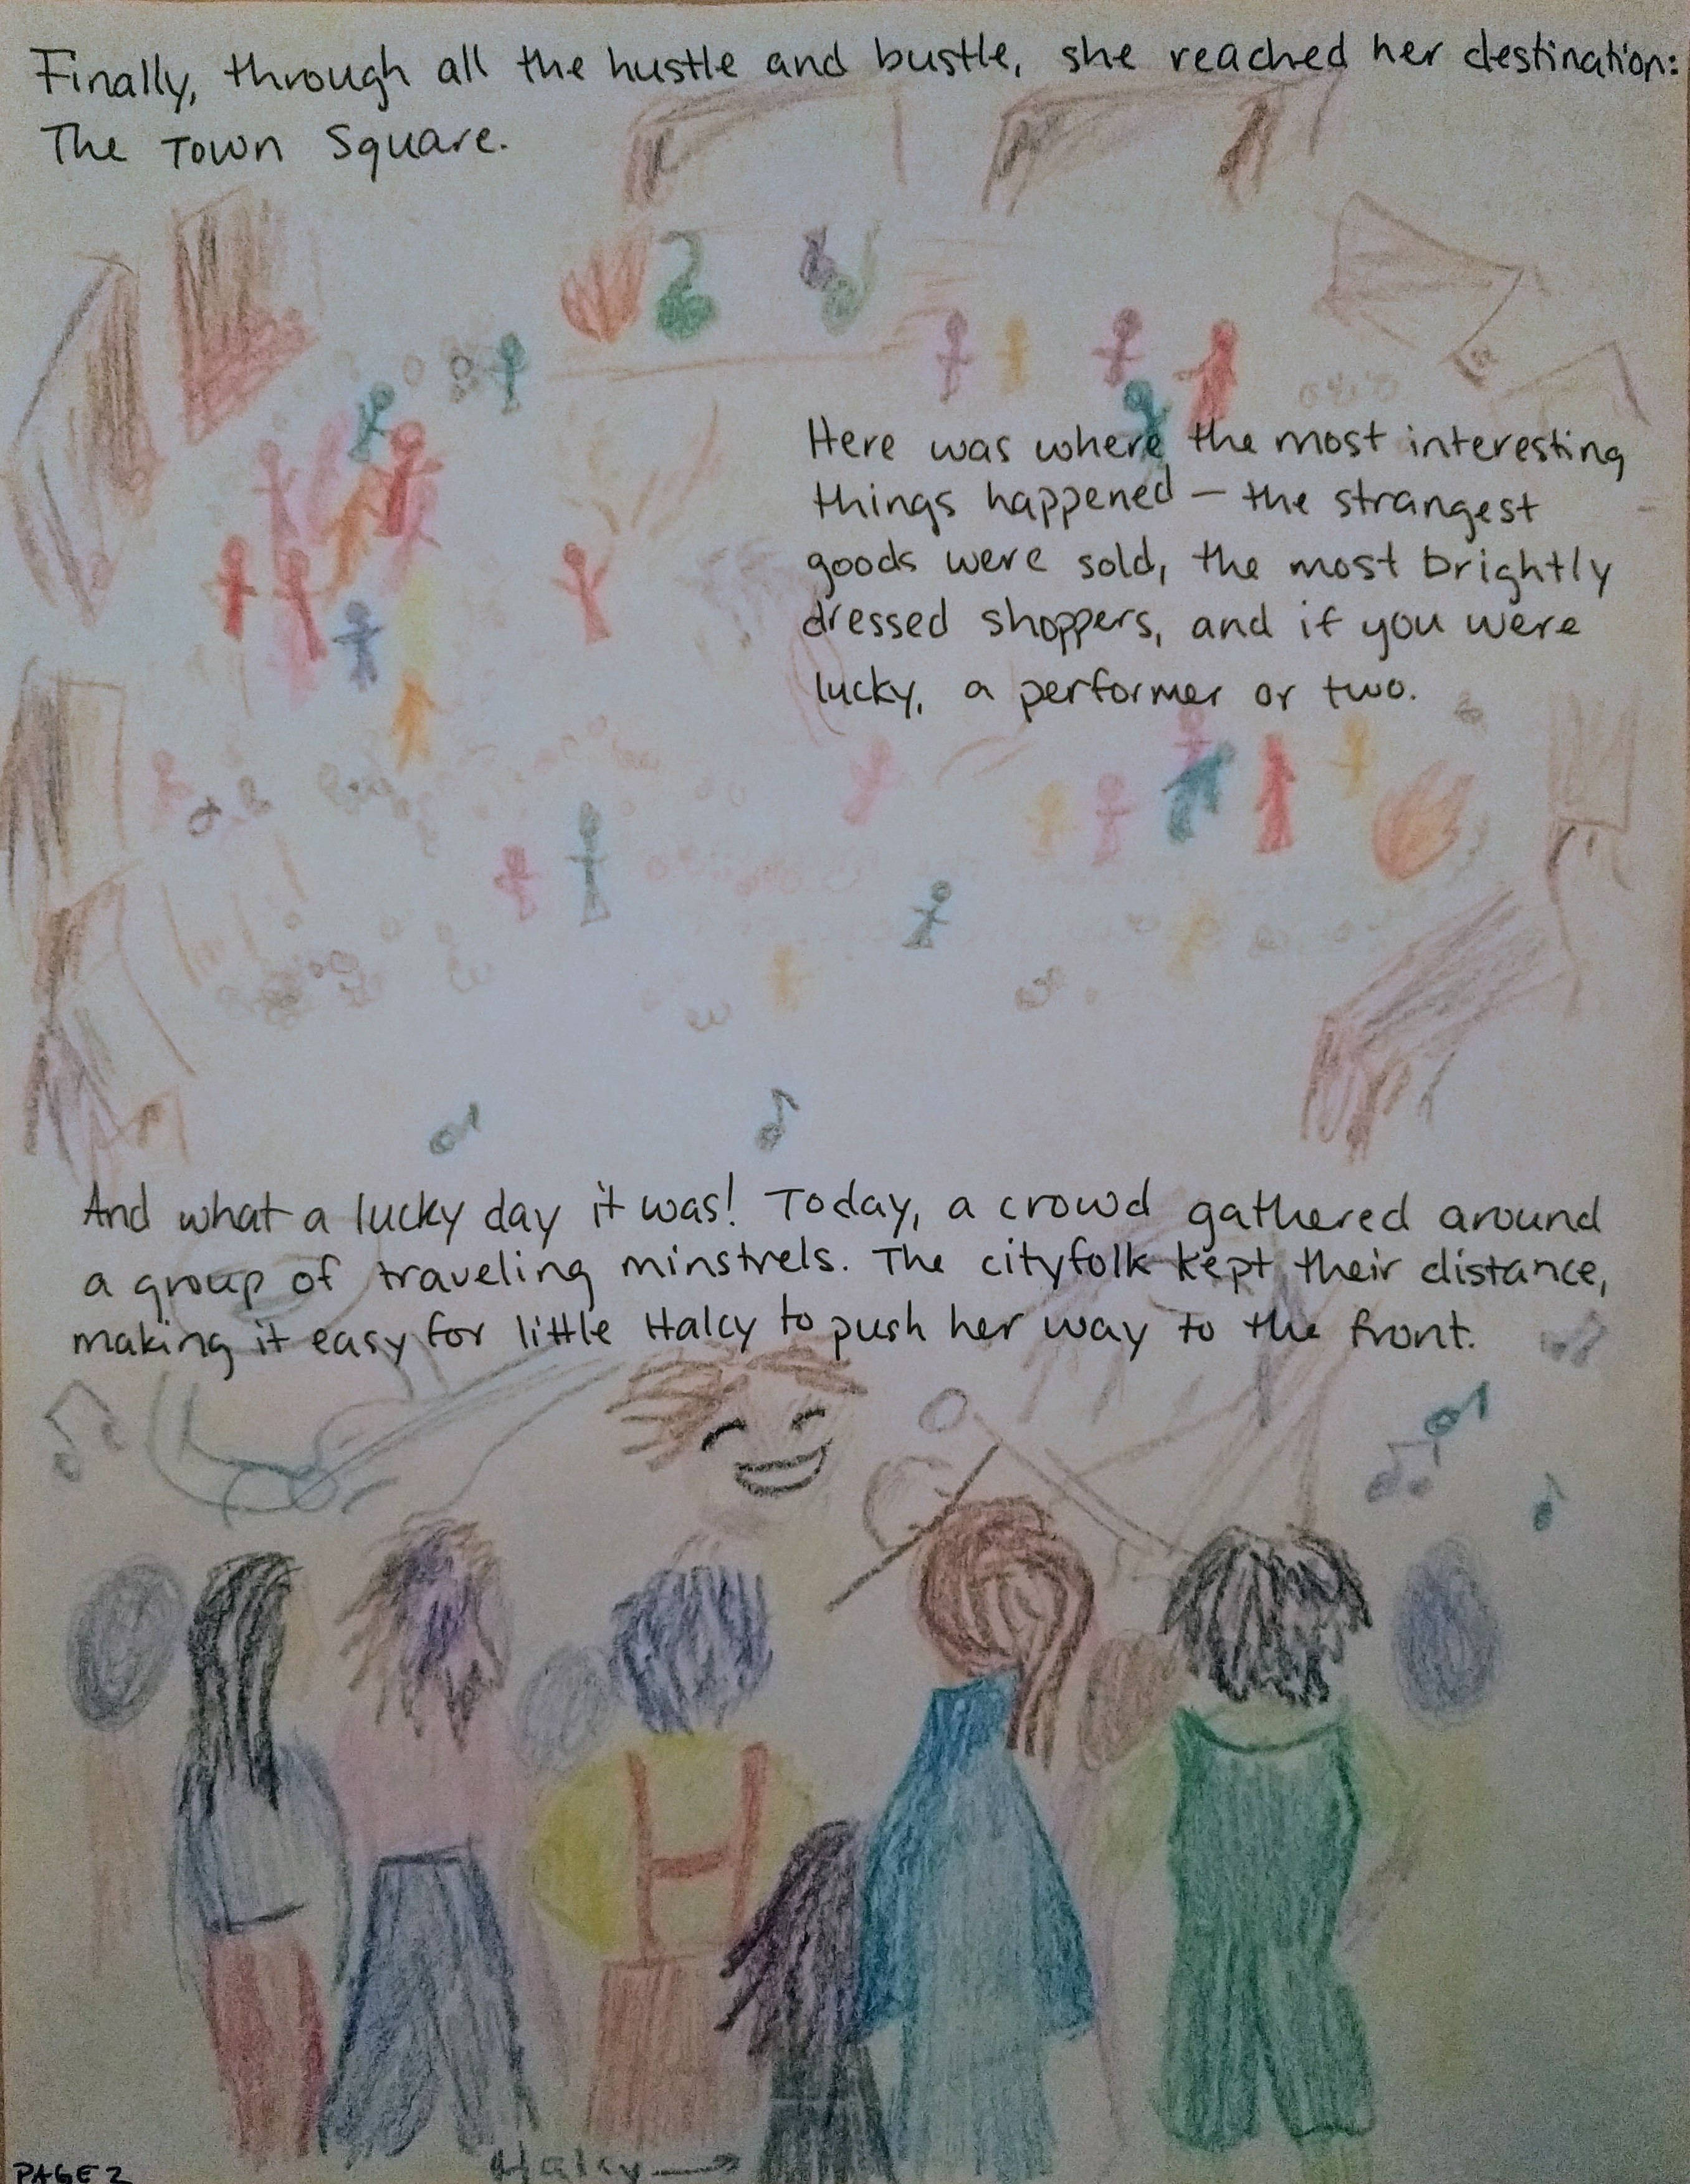 Finally, through all the hustle and bustle, she reached her destination:
The Town Square.
Here was where the most interesting
things happened — the strangest
goods were sold, the most brightly
dressed shoppers, and if you were
lucky, a performer or two.
And what a lucky day it was! Today, a crowd gathered around
a group of traveling minstrels. The cityfolk kept their distance,
making it easy for little Halcy to push her way to the front.
Halcy →
PAGE 2